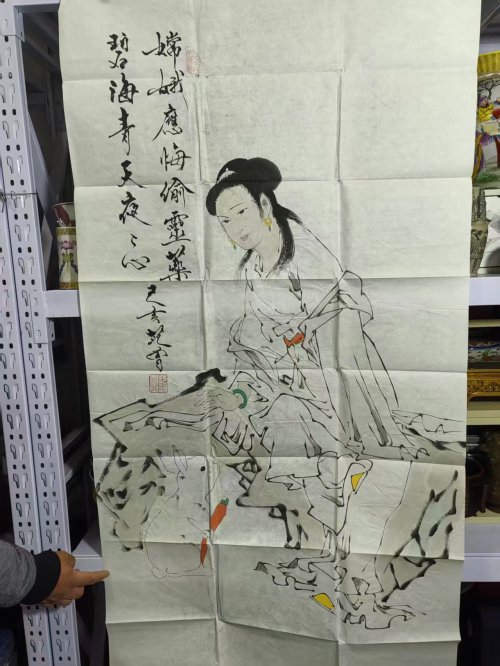 嫦娥應悔偷靈藥
碧海青天夜〻心
范曾